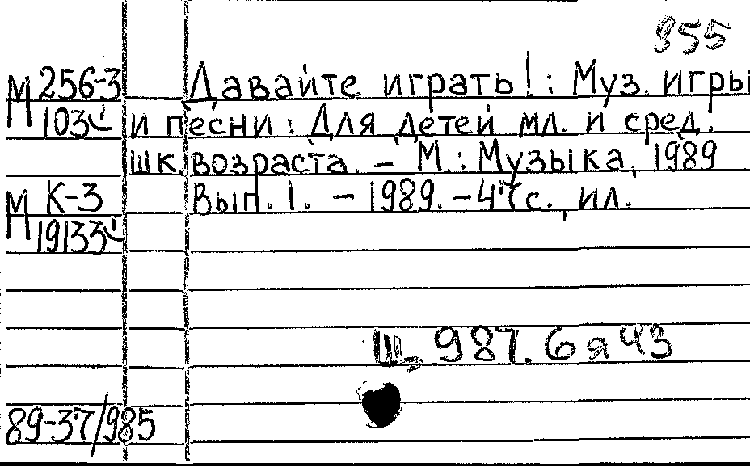 955
М 256-3
103
Давайте играть! : Муз. игры
и песни : Для детей мл. и сред.
шк. возраста. – М. : Музыка, 1989
М К-3
19133
Вып. 1. – 1989. – 47 с., ил.
Щ 987.6я43
89-37/985